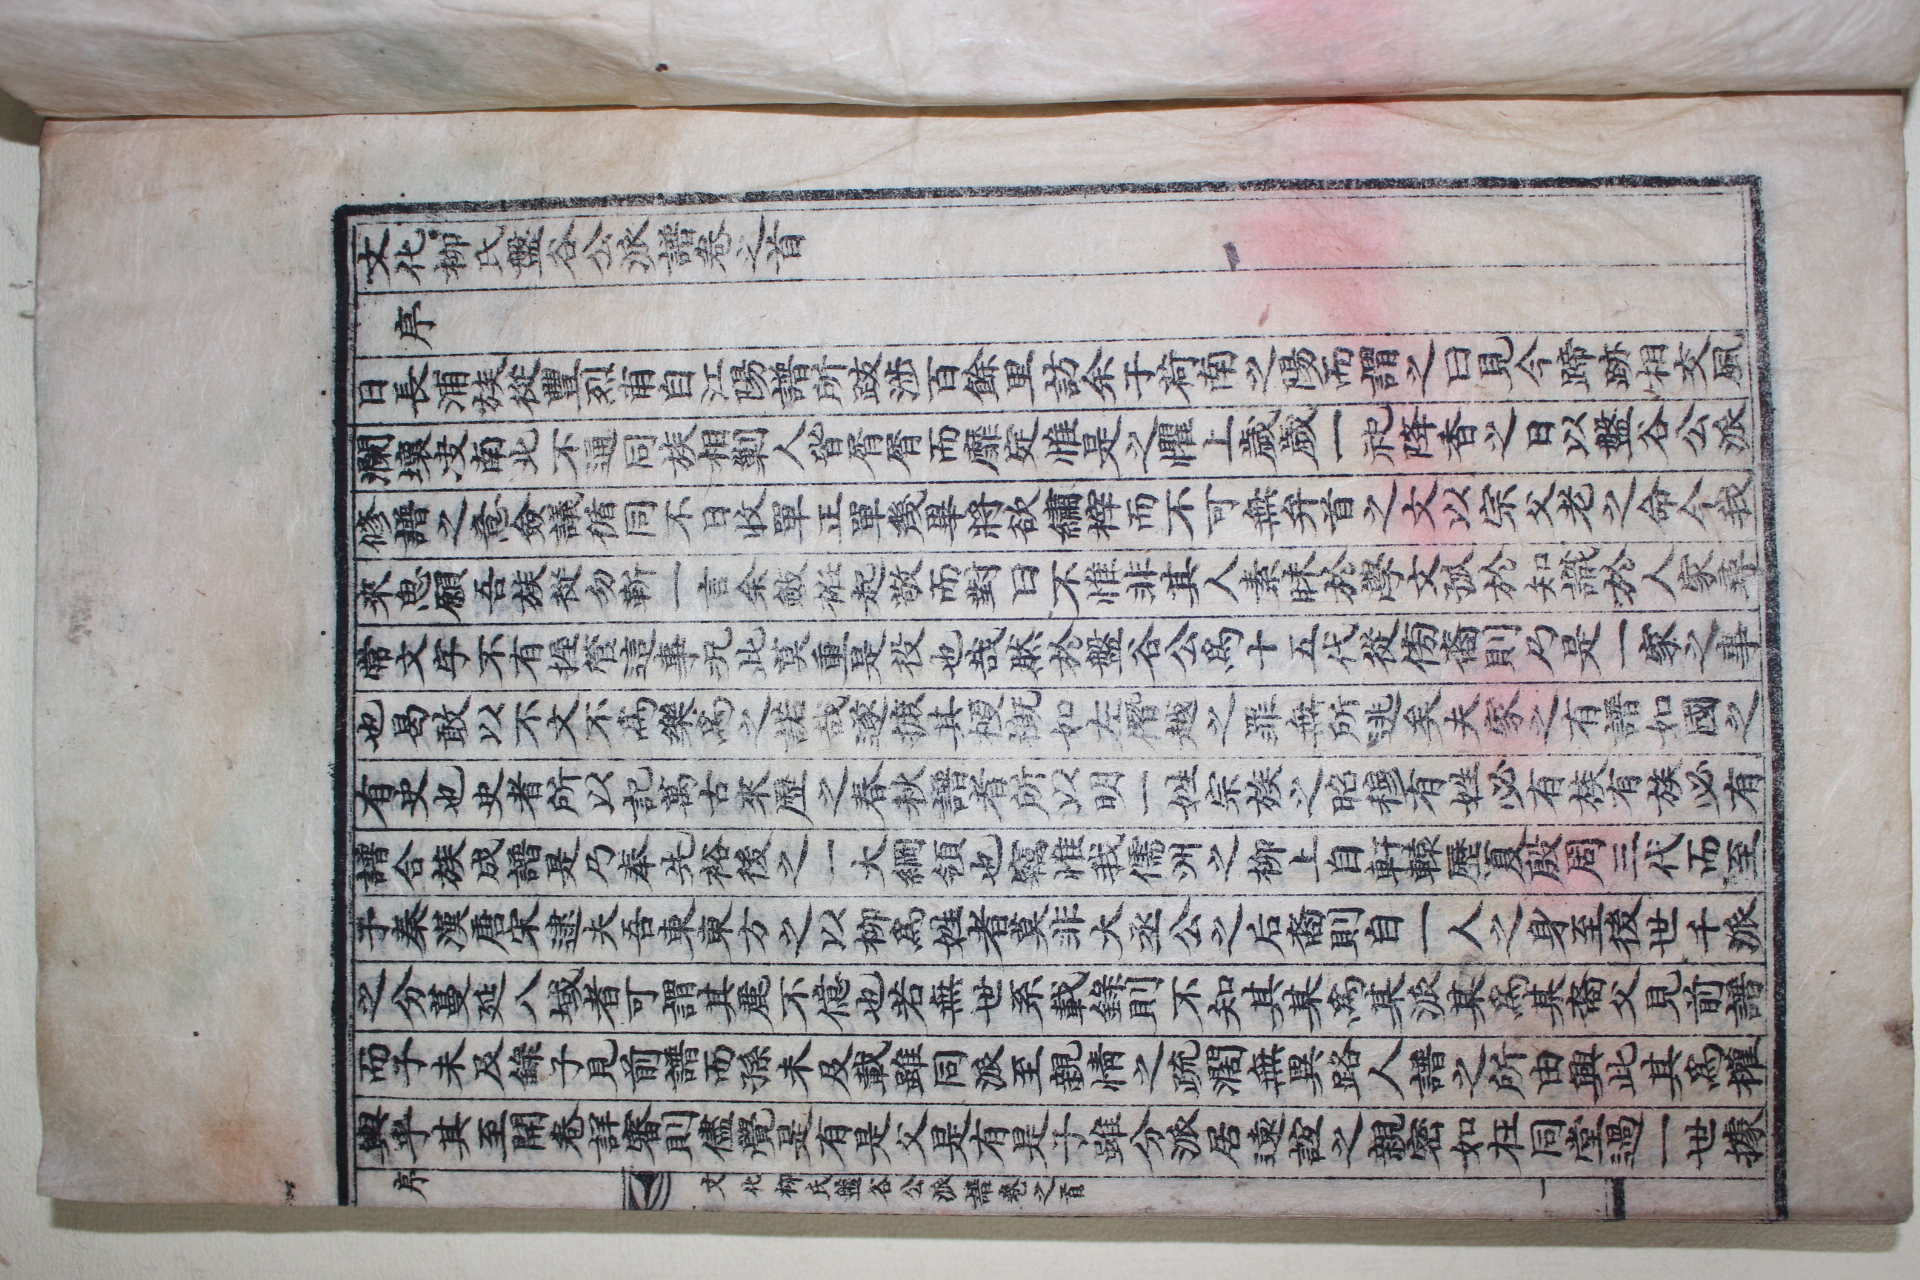 文化柳氏盤谷公派譜卷之首
序
日長浦族從豊烈甫自江陽譜所跋涉百餘里訪余于荷南之陽而謂之曰見今蹄跡相交風
潮壞決南北不通同族相剿人皆胥胥而靡定惟是之懼上歲歲一祀降香之日以盤谷公派
修譜之意僉議循同不日收單正單幾畢將欲繡梓而不可無弁首之文以宗父老之命今我
來思願吾族從勿靳一言余斂衽起敬而對曰不惟非其人素昧於學文孤於知識於人家尋
常文字不有握管記事況此莫重是役也哉然於盤谷公爲十五代從傍裔則乃是一家之事
也曷敢以不文不爲樂爲之諾哉遂掇其梗槪如左僭越之罪無所逃矣夫家之有譜如國之
有史也史者所以記萬古來歷之春秋譜者所以明一姓宗族之昭穆有姓必有族有族必有
譜合族成譜是乃奉先裕後之一大綱領也竊惟我儒州之柳上自軒轅歷夏殷周三代而至
于秦漢唐宋逮夫吾東東方之以柳爲姓者莫非大丞公之后裔則自一人之身至後世千派
之分蔓延八域者可謂其麗不億也若無世系載錄則不知其某爲某派某爲某裔父見前譜
而子未及錄子見前譜而孫未及載雖同派至親情之疏濶無異路人譜之所由興此其爲權
輿乎其至開卷詳審則儘覺是有是父是有是子雖分派居遠誼之親密如在同堂過一世據
序
文化柳氏盤谷公派譜卷之首
一